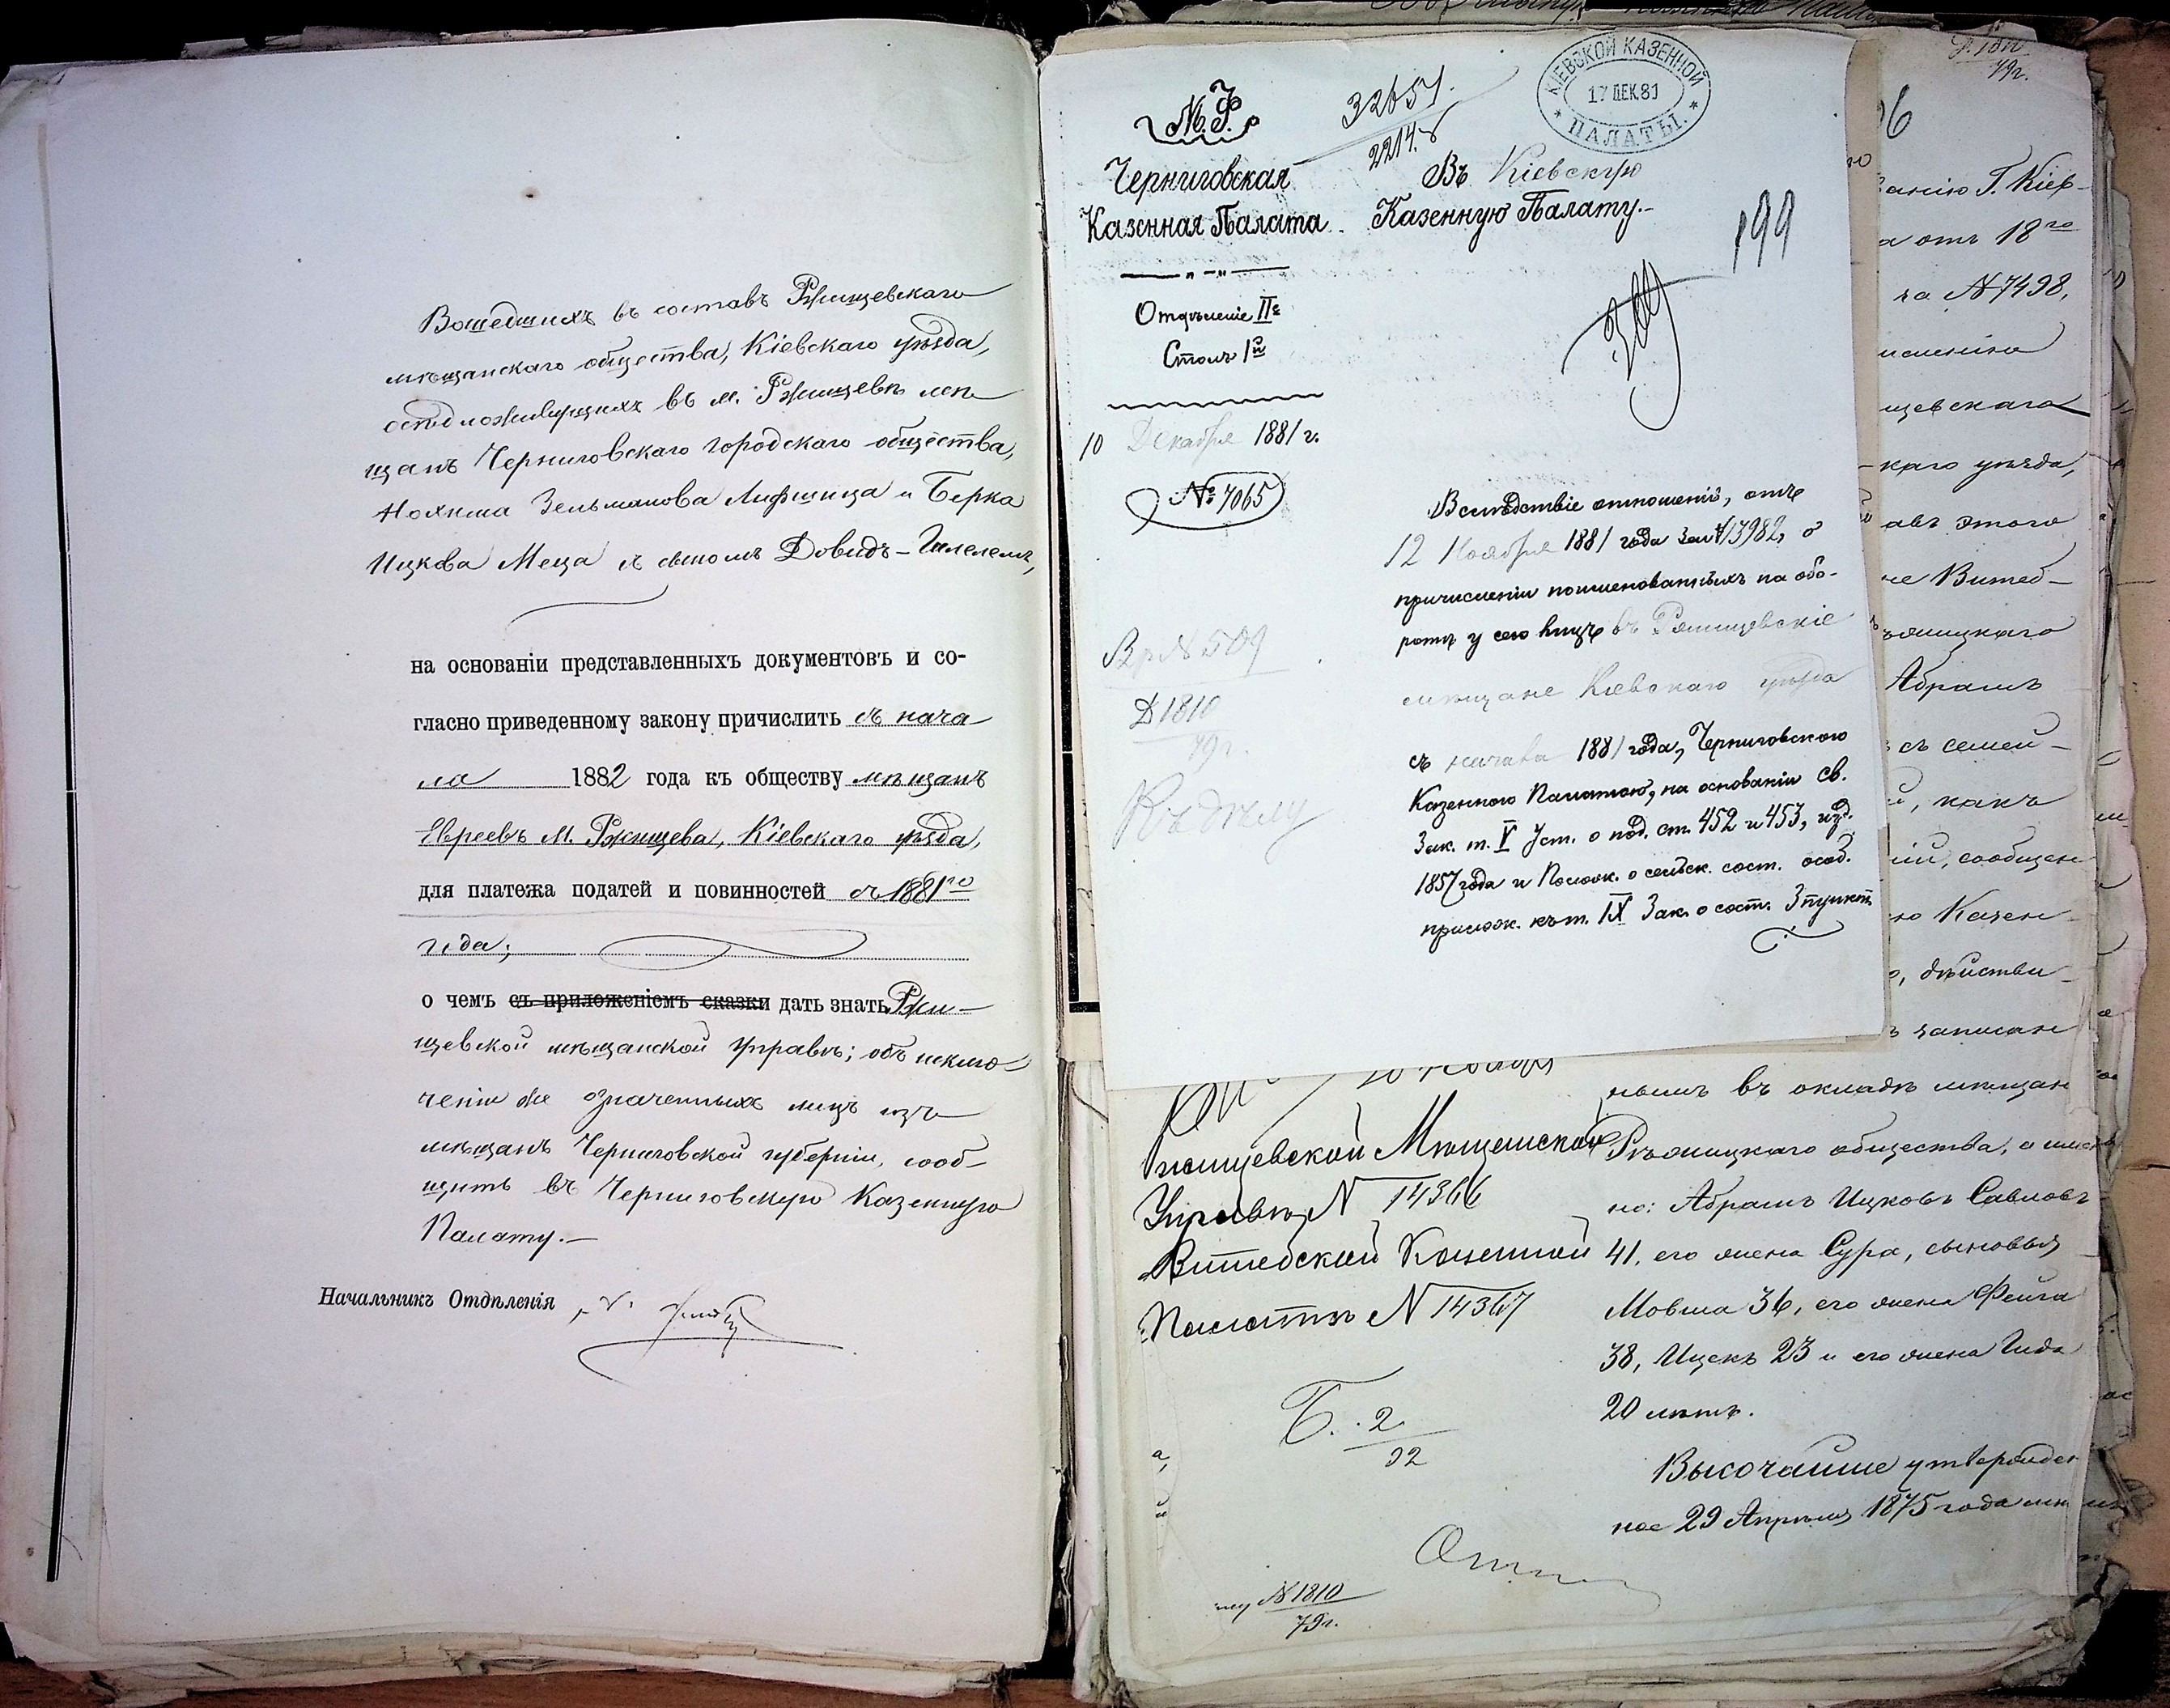 Вошедшихъ въ составъ Ржищевскаго
мѣщанскаго общества, Кіевскаго уѣзда,
осѣдложивущихъ въ м. Ржищевѣ мѣ-
щанъ Черниговскаго городскаго общества,
Нохима Зельманова Лифшица и Берка
Ицкова Меца съ сыномъ Довидъ-Гилелемъ,
на основаніи представленныхъ документовъ и со-
гласно приведенному закону причислить съ нача
ла 1882 года къ обществу мѣщанъ
Евреевъ м. Ржищева, Кіевскаго уѣзда,
для платежа податей и повинностей съ 1881го
года;
о чемъ съ приложеніемъ сказки дать знать Ржи-
щевской мѣщанской Управѣ; объ исклю-
ченіи же означенныхъ лицъ изъ
мѣщанъ Черниговской губерніи, сооб-
щить въ Черниговскую Казенную
Палату.-
Начальникъ Отдѣленія
М.Ф.
Черниговская
Казенная Палата
Отдѣленіе IIе
Столъ 1й
10 Декабря 1881 г.
№ 7065
32651.
КІЕВСКОЙ КАЗЕННОЙ
17 ДЕК.81
ПАЛАТЫ.
Въ Кіевскую
Казенную Палату.-
199
Вслѣдствіе отношенія, отъ
12 Ноября 1881 года за № 13982, о
причисленіи поименованныхъ на обо-
ротѣ у сего лицъ въ Ржищевскіе
мѣщане Кіевскаго уѣзда
съ начала 1881 года, Черниговскою
Казенною Палатою, на основаніи Св.
Зак. т. V Уст. о под. ст. 452 и 453, изд.
1857 года и Полож. о сельск. сост. особ.
прилож. къ т. IX Зак. о сост. 3 пункт.
Вр № 509
Д 1810
79 г.
Къ дѣлу
79г.
анію Г. Кіев-
а отъ 18го
за № 7498,
щевскаго
-каго уѣзда,
авъ этого
не Витеб-
Абрамъ
съ семей-
, какъ
іи, сообщен
ю Казен-
о, дѣйстви-
записан
нымъ въ окладѣ мѣщан
Рѣжицкаго общества, а имен
но: Абрамъ Ицковъ Савловъ
41, его жена Сура, сыновья
Мовша 36, его жена Фейга
38, Ицекъ 23 и его жена Гида
20 лѣтъ.
Высочайше утвержден
ное 29 Апрѣля 1875 года мн
Ржищевской Мѣщанской
Управѣ № 14366
Витебской Казенной
Палатѣ № 14367
Б. 2
92
№ 1810
79г.